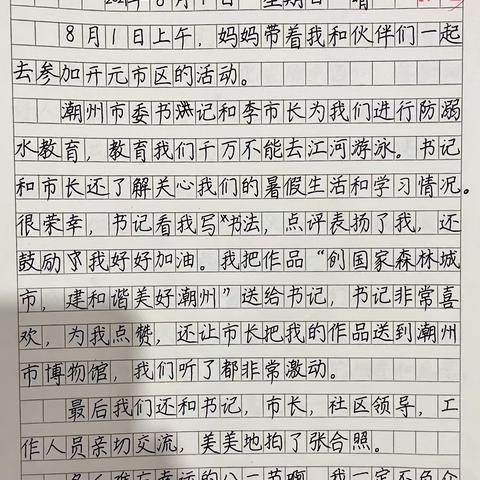 8月1日上午，妈妈带着我和伙伴们一起
去参加开元市区的活动。
潮州市委书记和李市长为我们进行防溺
水教育，教育我们千万不能去江河游泳。书记
和市长还了解关心我们的暑假生活和学习情况。
很荣幸，书记看我写书法，点评表扬了我，还
鼓励了我好好加油。我把作品“创国家森林城
市，建和谐美好潮州”送给书记，书记非常喜
欢，为我点赞，还让市长把我的作品送到潮州
市博物馆，我们听了都非常激动。
最后我们还和书记，市长，社区领导，工
作人员亲切交流，美美地拍了张合照。